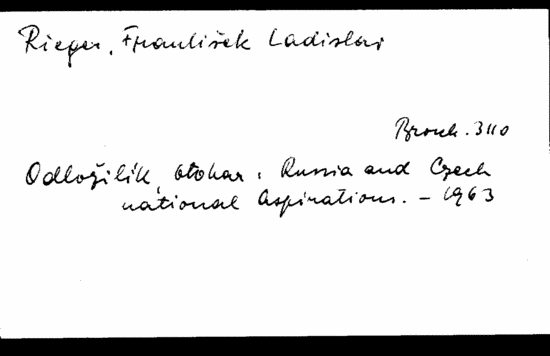 Rieger, František Ladislav
Brosch. 3110
Odložilík, Otokar: Russia and Czech
national Aspirations. – 1963